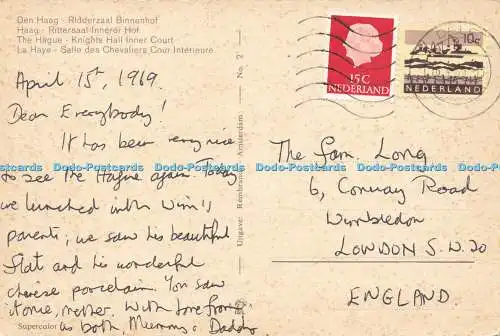 Den Haag - Ridderzaal Binnenhof
Haag - Rittersaal Innerer Hof
The Hague - Knights Hall Inner Court
La Haye - Salle des Chevaliers Cour Intérieure
April 15th, 1969.
Dear Everybody!
It has been very nice
to see the Hague again. Today
we lunched with Wim's
parents; we saw his beautiful
flat and his wonderful
chinese porcelain. You saw
it once, mother. With love from
us both, Mummy & Daddy
Supercolor
Uitgave: Rembrandt Amsterdam
No. 2
15C
NEDERLAND
10c
NEDERLAND
The Fam. Long
6, Conway Road
Wimbledon
LONDON S.W. 20
ENGLAND.
Dodo-Postcards Dodo-Postcards Dodo-Postcards Dodo-Postcards Dodo-Postcards